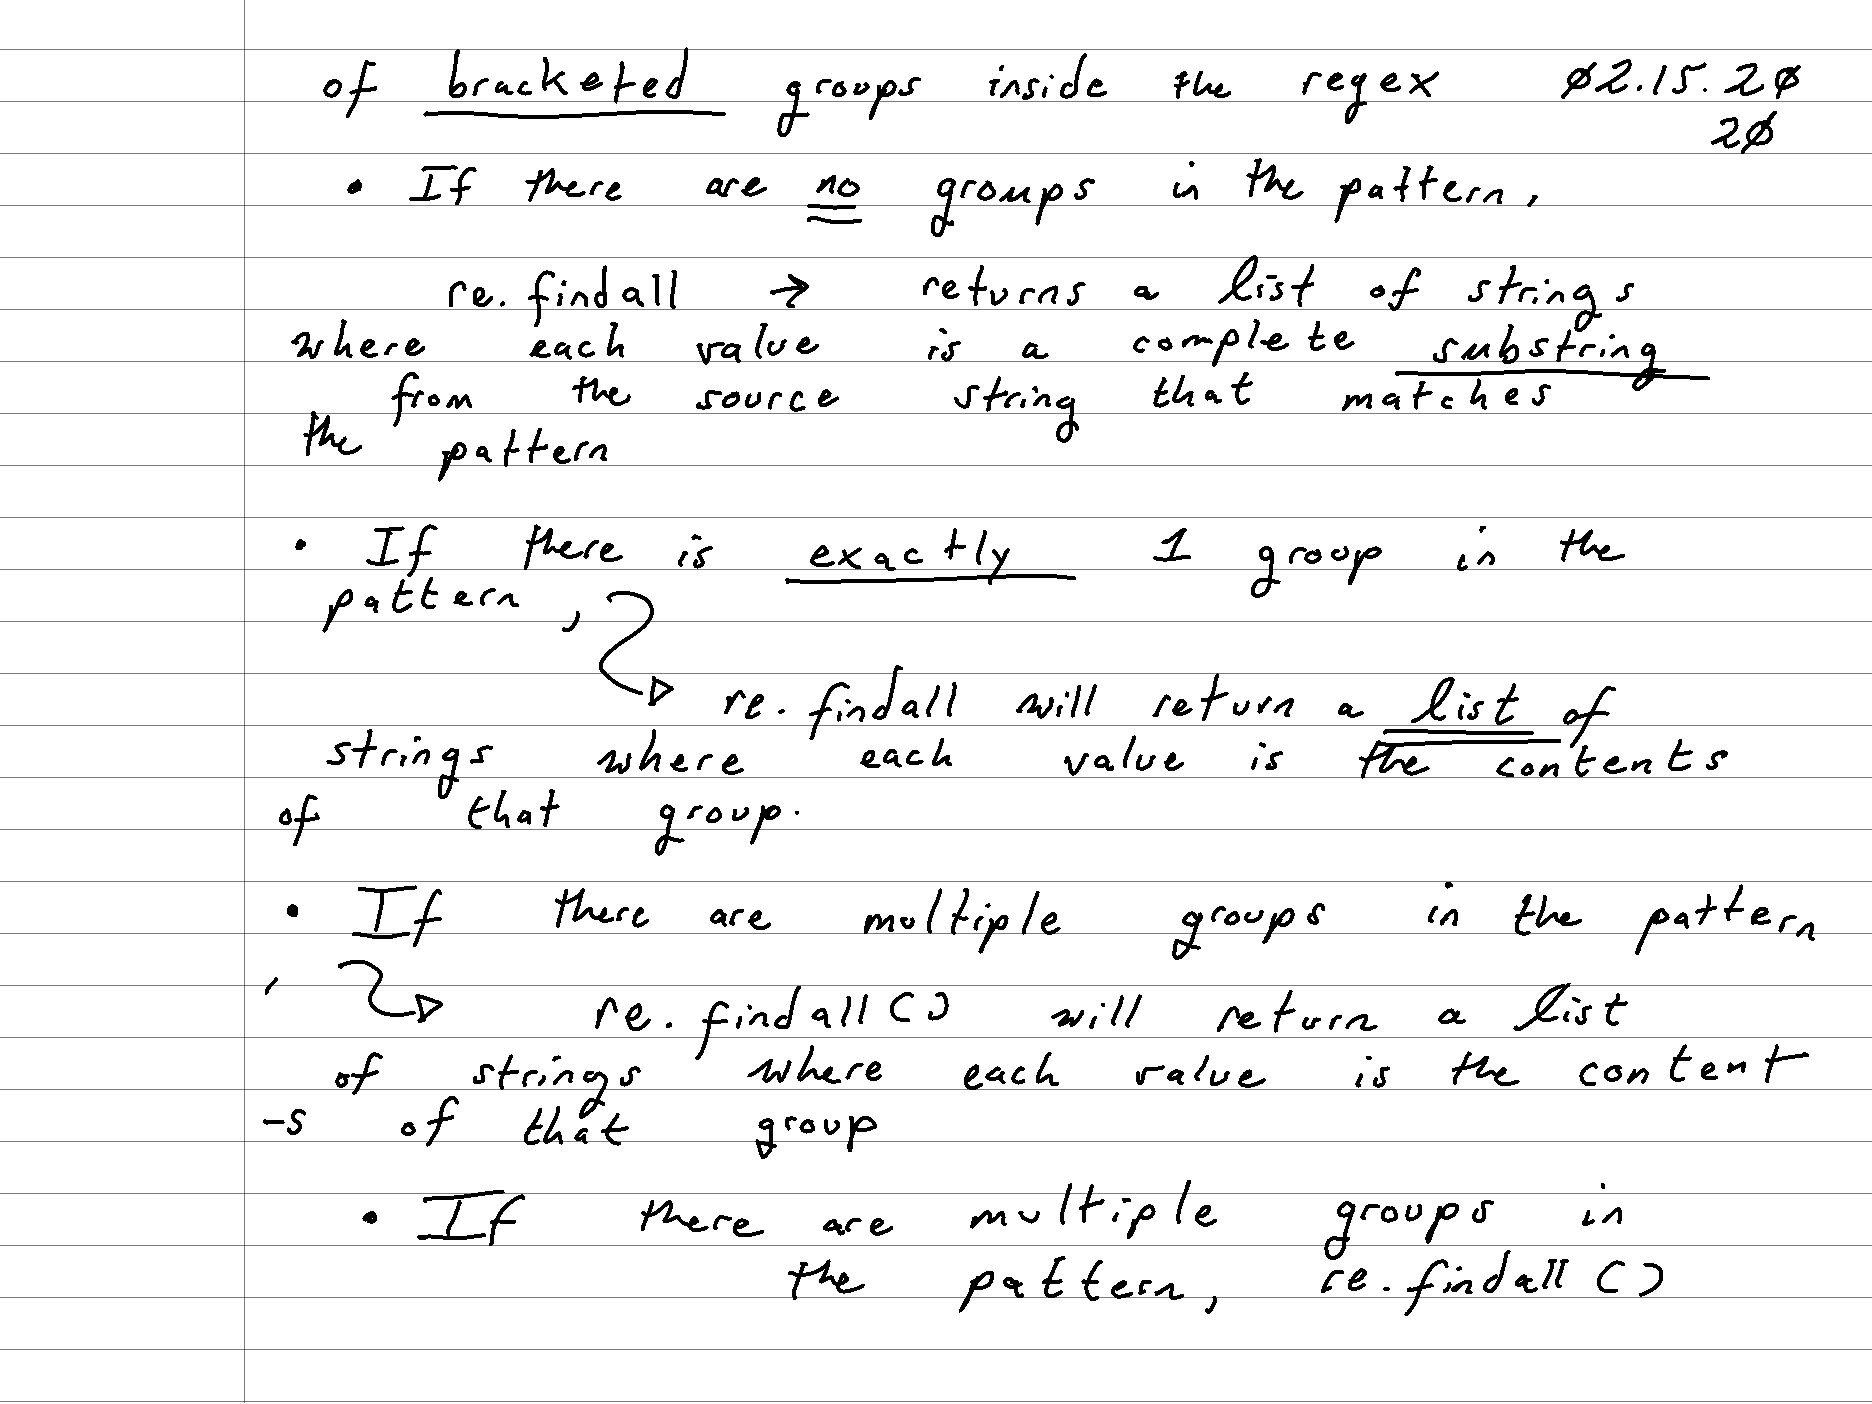 of bracketed groups inside the regex Ø2.15.2Ø
2Ø
• If there are no groups in the pattern,
re.findall → returns a list of strings
where each value is a complete substring
from the source string that matches
the pattern
• If there is exactly 1 group in the
pattern,
re.findall will return a list of
strings where each value is the contents
of that group.
• If there are multiple groups in the pattern
, re.findall() will return a list
of strings where each value is the content
-s of that group
• If there are multiple groups in
the pattern, re.findall()